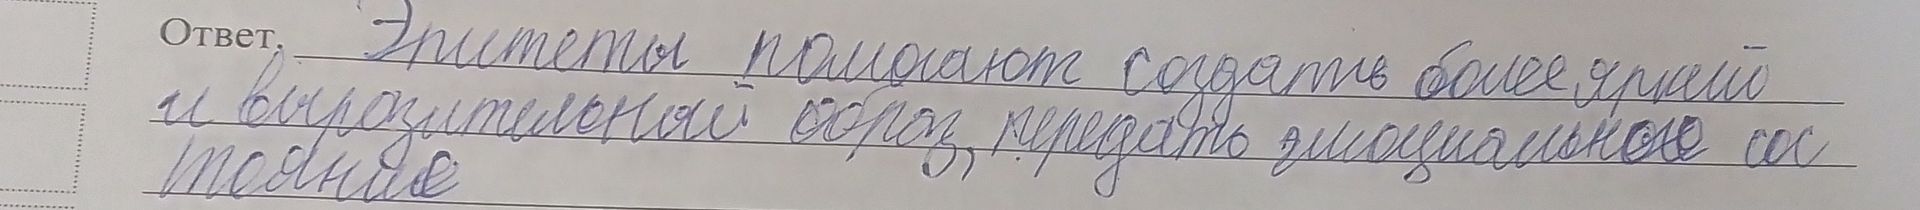 Ответ. Эпитеты помогают создать более яркий
и выразительный образ, передать эмоциальное сос
тояние